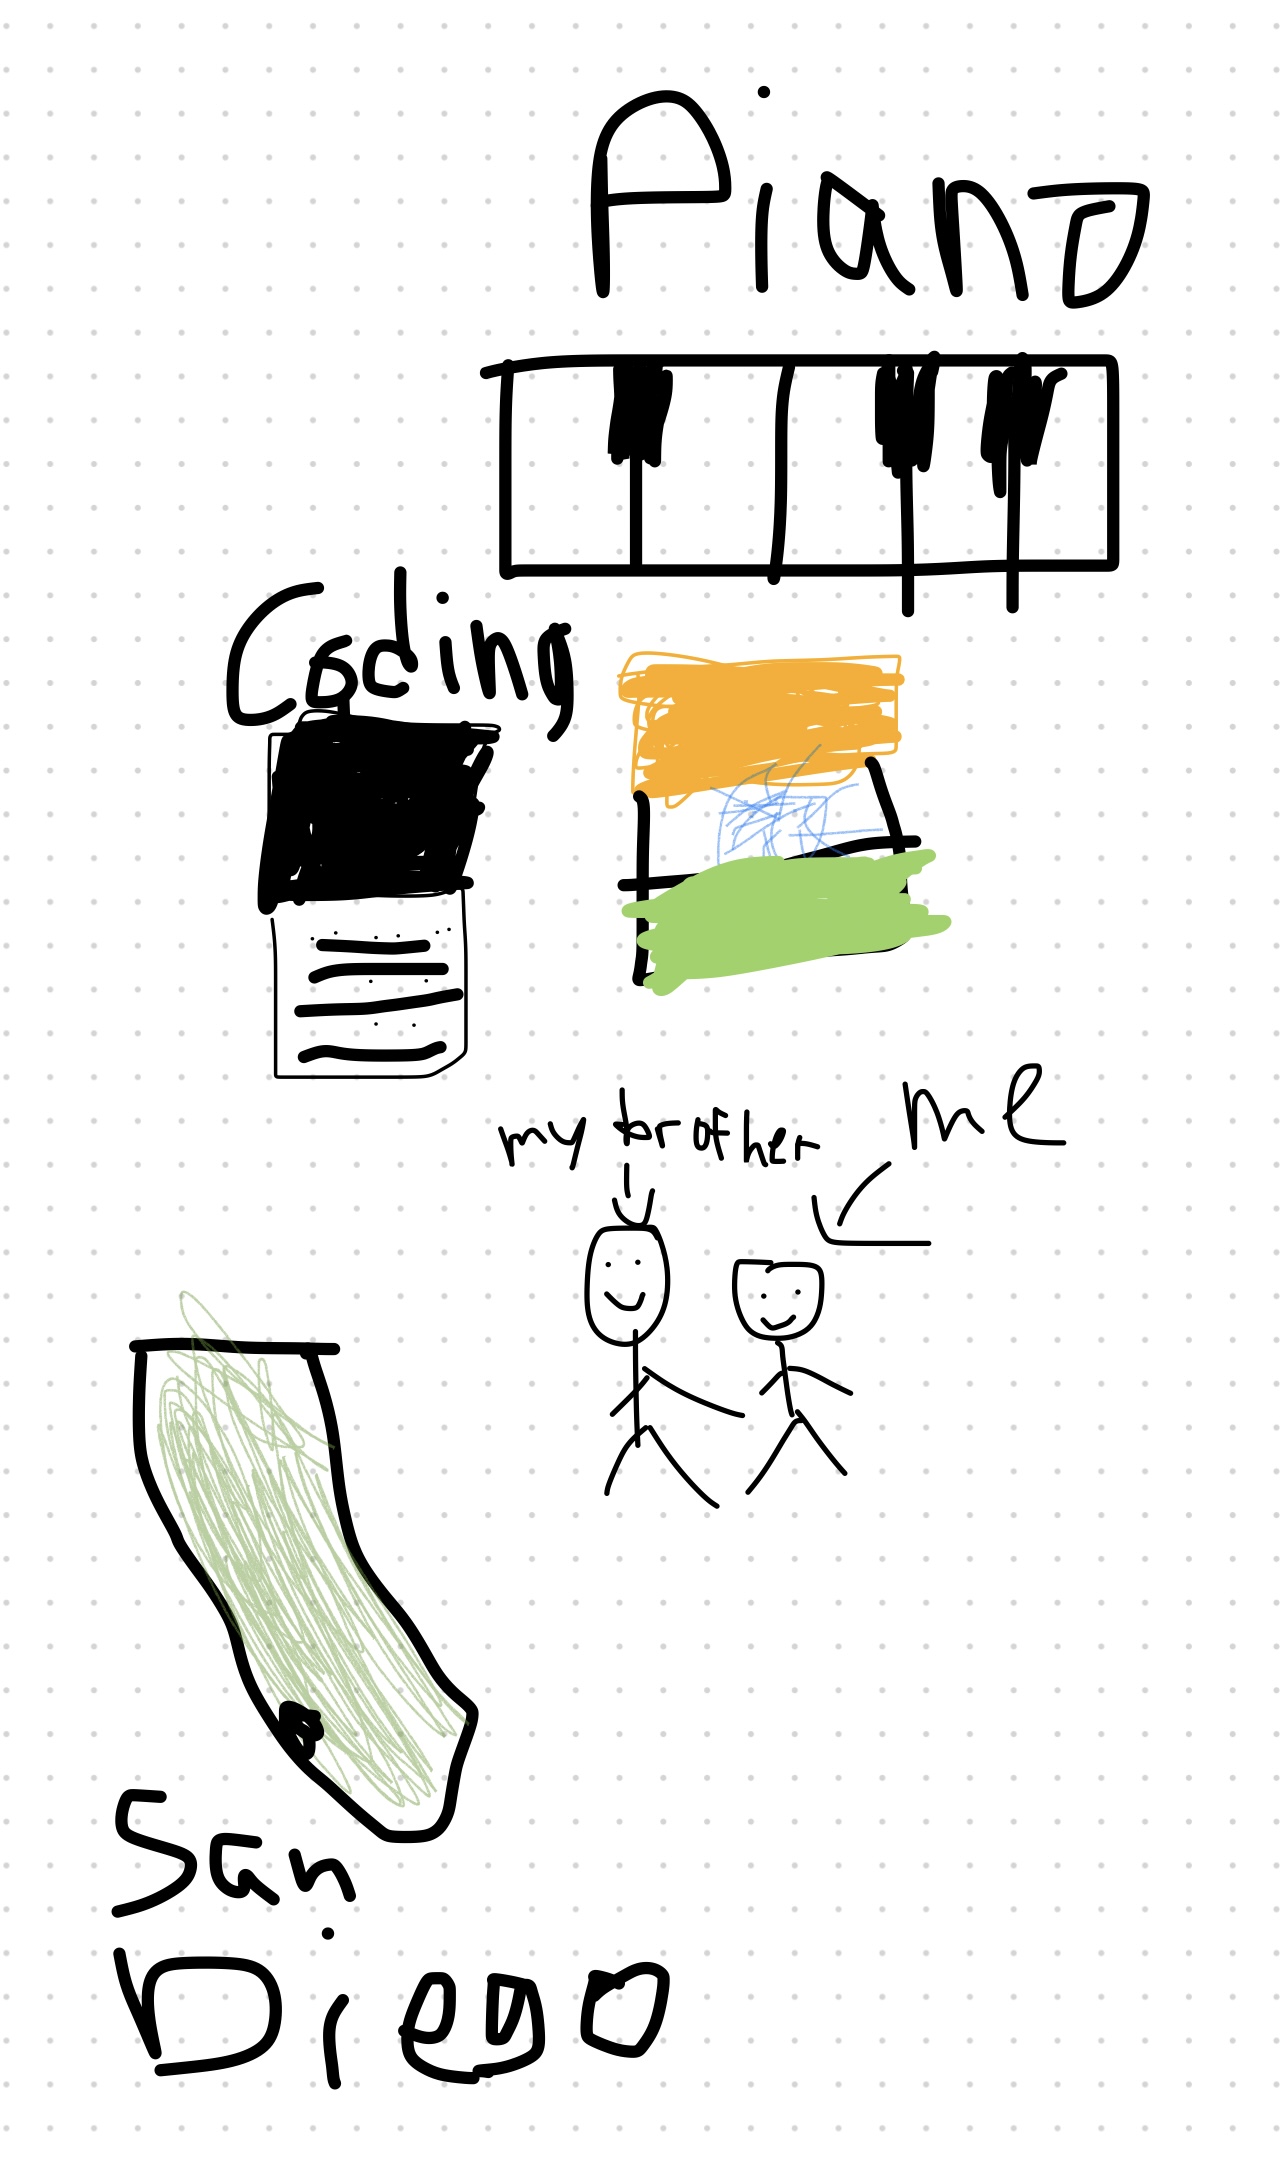 Piano
Coding
my brother
me
San
Diego